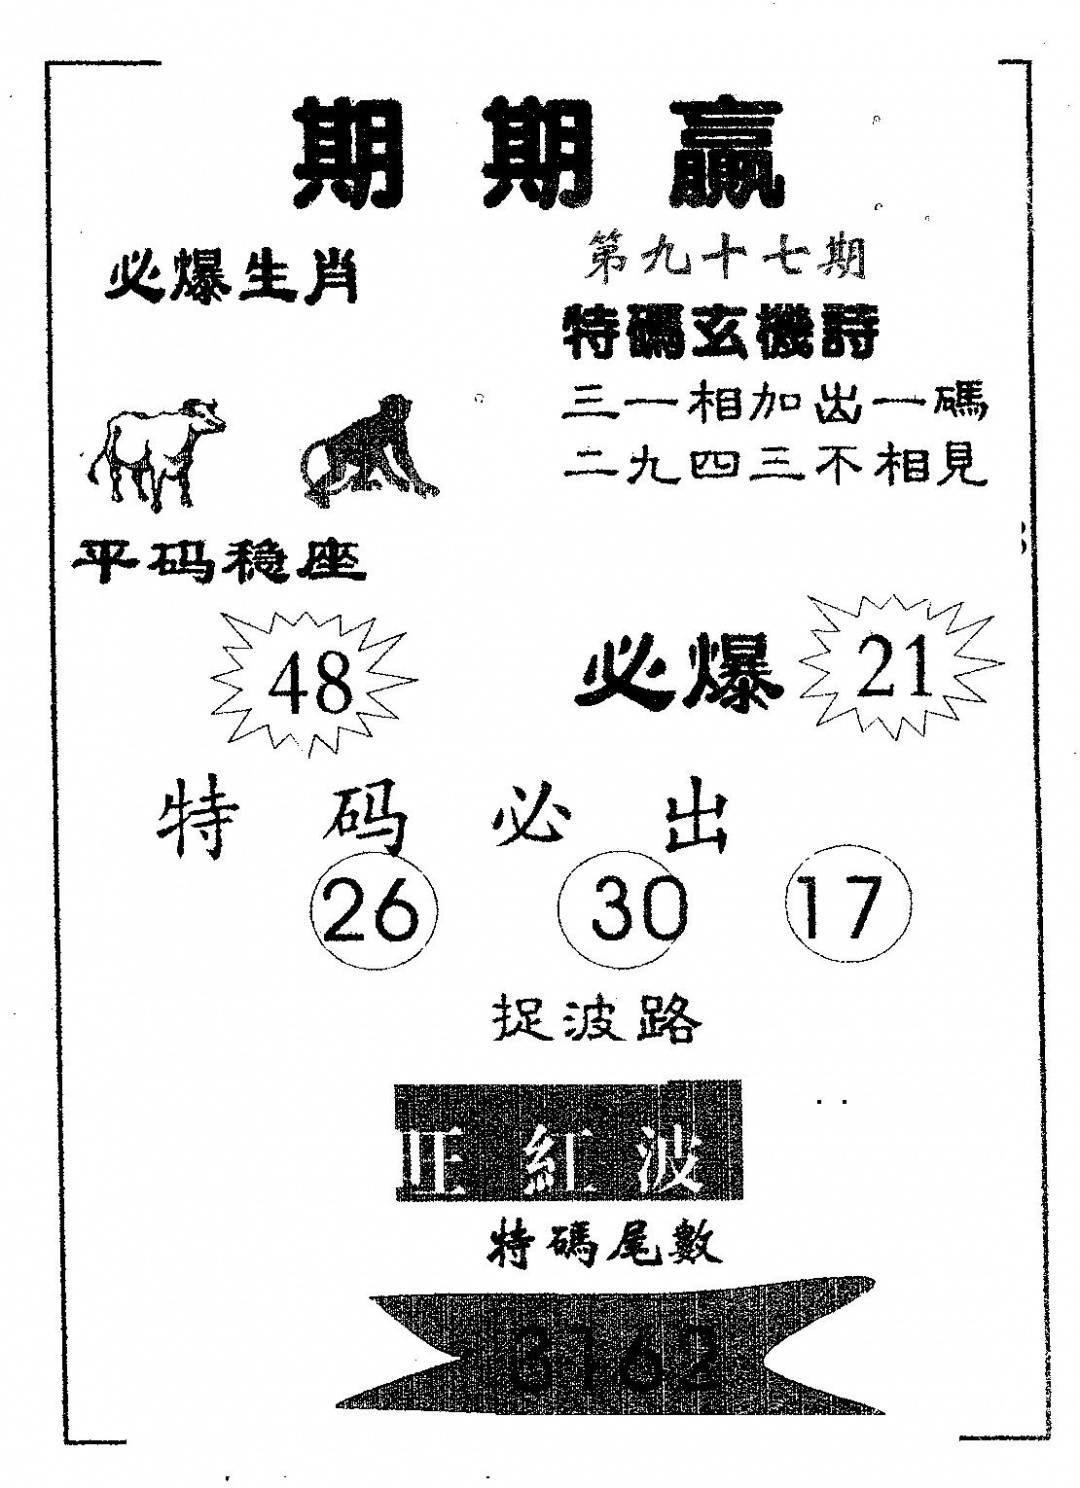 期期贏
第九十七期
必爆生肖
特碼玄機詩
三一相加出一碼
二九四三不相見
平码稳座
48
必爆 21
特码必出
26 30 17
捉波路
旺紅波
特碼尾數
3162